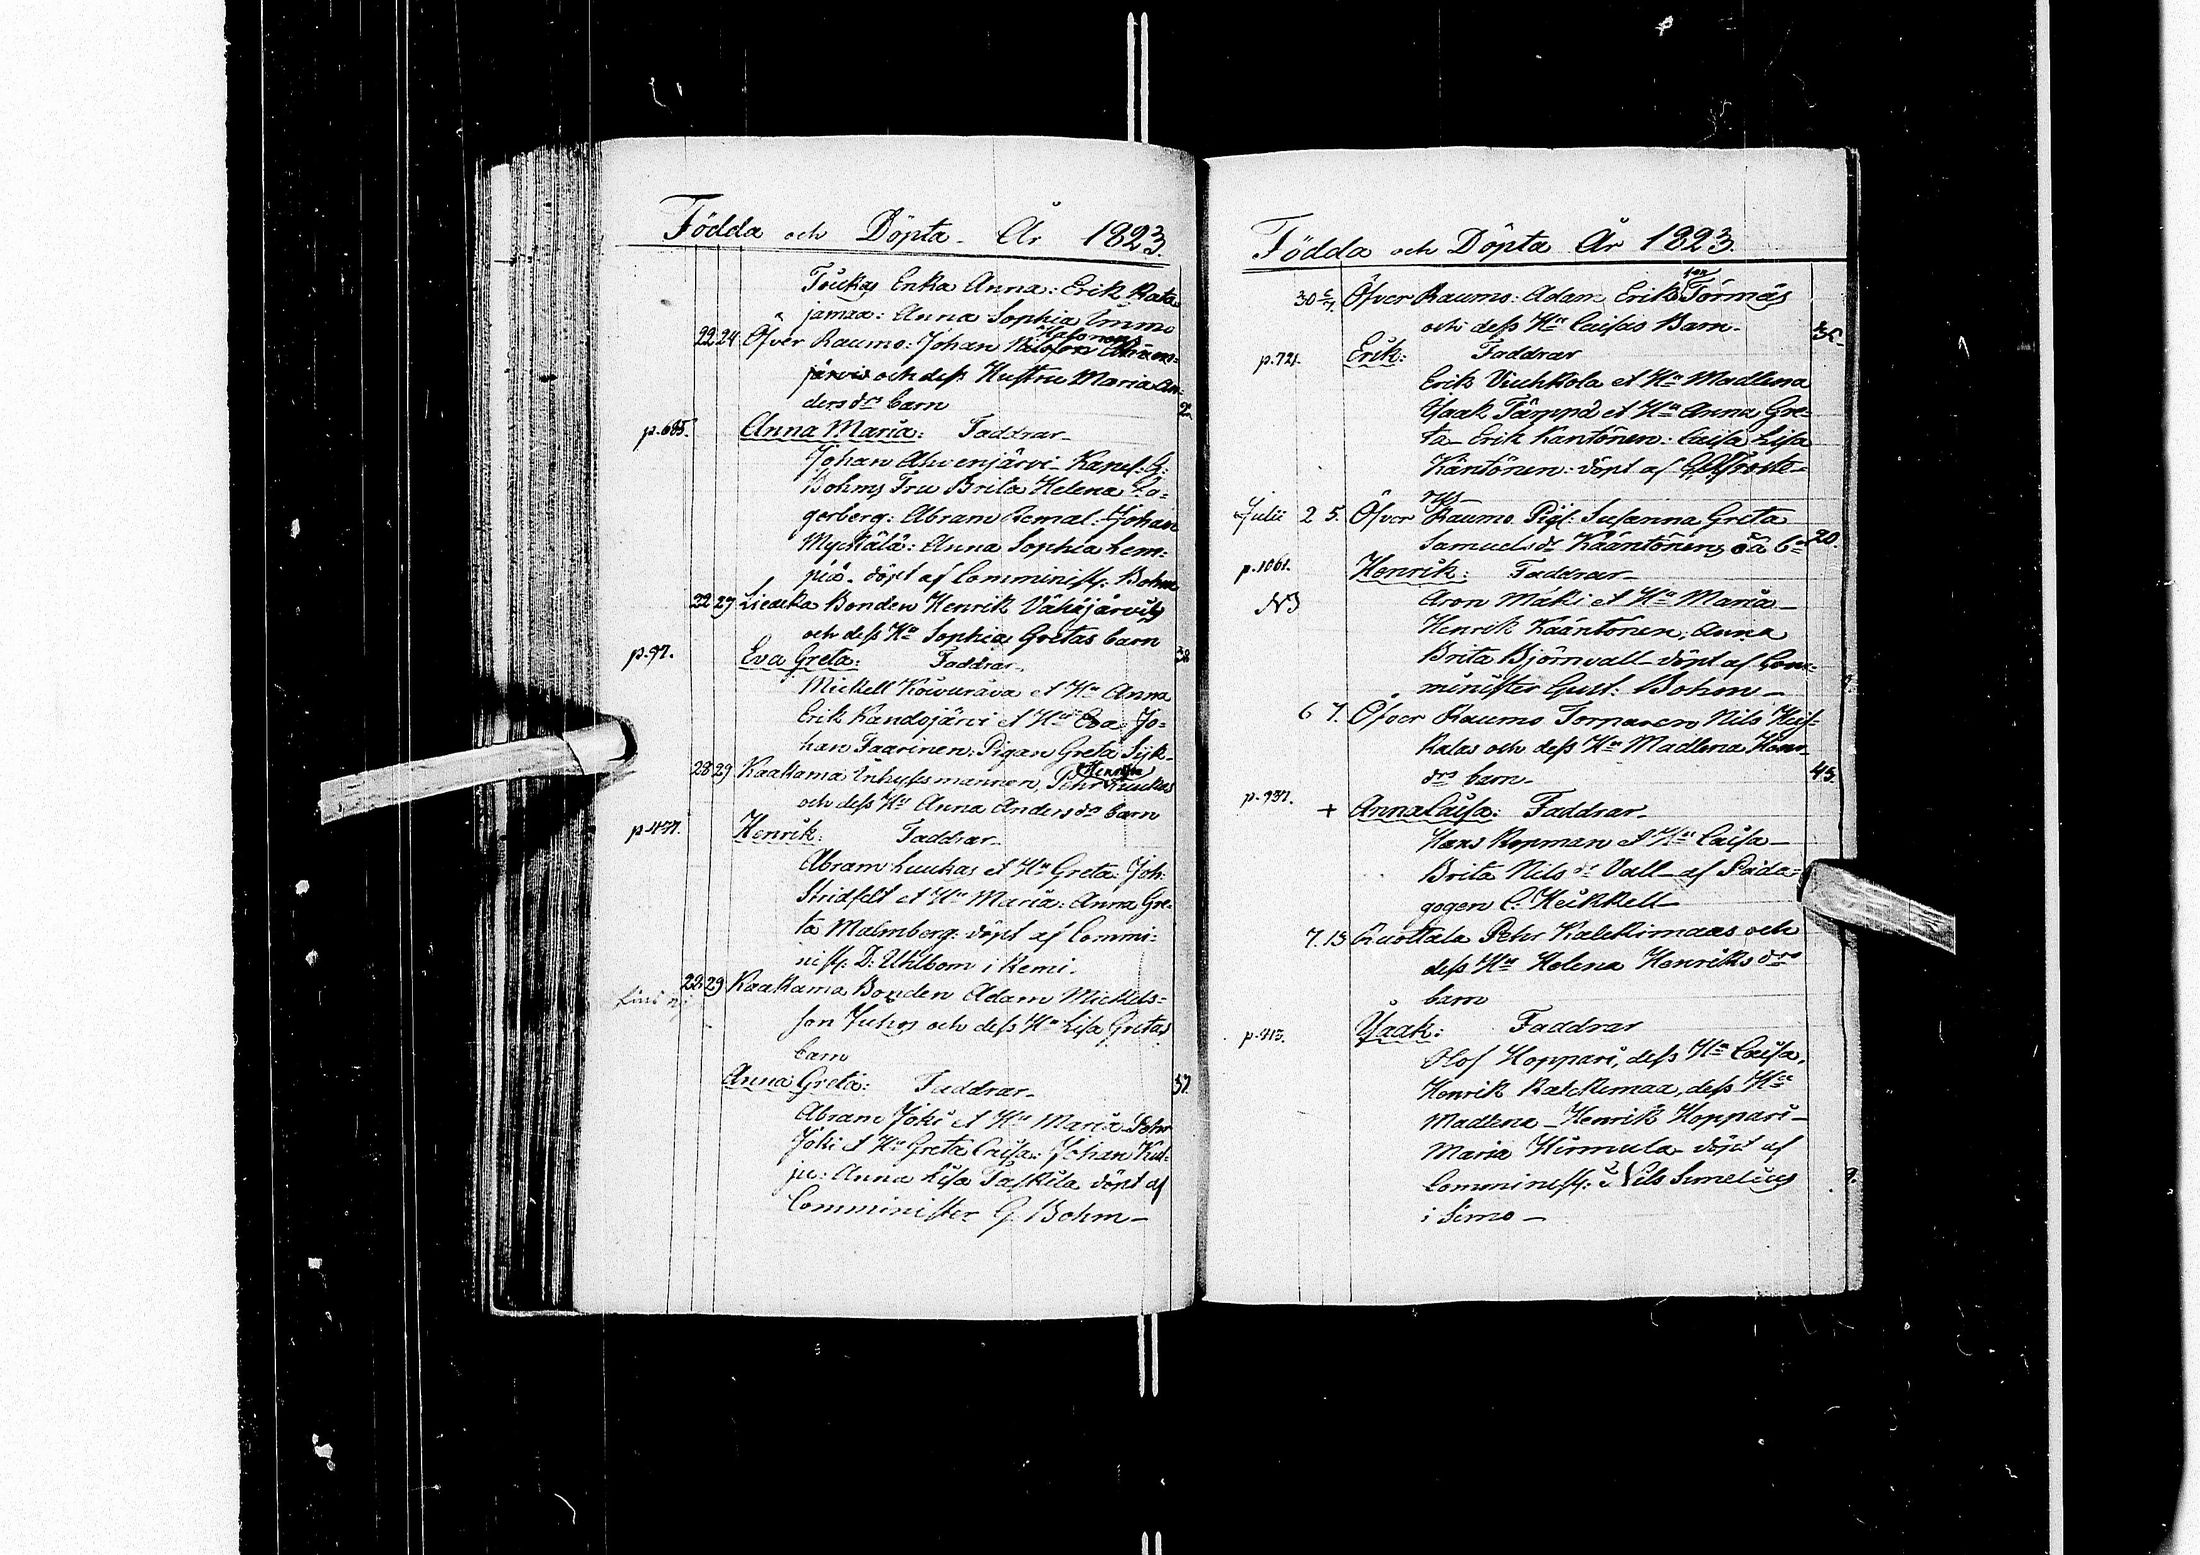 Födda och Döpta År 1823.
Toukas Enka Anna: Erik Kata
jamaa: Anna Sophia Immo
Halonens
22 24 Öfver Raumo: Johan
järvis och dess Hustru Maria An-
ders drs barn
2
p. 685. Anna Maria: Faddrar
Johan Ahvenjärvi
Bohms Fru Brita Helena La-
gerberg: Abram Remal: Johan
Myckälä: Anna Sophia Lem-
piä. döpt af Comminist. Bohm
22 27 Liedeka Bonden Henrik Vähäjärvis
och dess Hu Sophia Gretas barn
p. 97. Eva Greta: Faddrar. 32
Mickell Koivurava et Hu Anna
Erik Kandojärvi et Hu Eva: Jo-
han Taarinen, Pigan Greta Syk
Henriks
28 29 Kaakama Inhysesmannen, Pehr Luukas
och dess Hu Anna Anders drs barn
p. 437. Henrik: Faddrar
Abram Luukas et Hu Greta: Joh.
Stridfelt et Hu Maria: Anna Gre-
ta Malmberg: döpt af Commi-
nist. D: Uhlbom i Kemi.
28 29 Kaakama Bonden Adam Mickels-
son Juhos och dess Hu Lisa Gretas
barn
Anna Greta: Faddrar 37.
Abram Joki et Hu Maria Pehr
Joki et Hu Greta Caisa: Johan Kul-
ju: Anna Lisa Taskila döpt af
Comminister G. Bohm
Födda och Döpta År 1823.
son
30 Öfver Raumo: Adam Eriks Törmäs
och dess Hu Caisas Barn
p. 721. Erik: Faddrar
Erik Viuhkola et Hu Madlena
Isaak Tämppä et Hu Anna Gre-
ta Erik Kantönen: Caisa Lisa
Käntönen: döpt af G. A. Froste-
rus
Julii 2 5. Öfver Raumo Pig: Susanna Greta
Samuels dr Kääntönens oä bn 20.
p. 1061. Henrik: Faddrar
N3 Aron Mäki et Hu Maria
Henrik Kääntönen, Anna
Brita Björnvall döpt af Com-
minister Gust: Bohm
6 7. Öfver Raumo Torparen Nils Heis-
kalas och dess Hu Madlena Henr.
drs barn 43.
p. 937. + Anna Caisa: Faddrar
Hans Ropman et Hu Caisa
Brita Nils dr Vall af Päda-
gogen C. Heikkell
7. 13 Ruottala Pehr Kalckimaas och
dess Hu Helena Henriks drs
barn
p. 413. Isaak: Faddrar
Olof Hoppari, dess Hu Caisa,
Henrik Kalckimaa, dess Hu
Madlena Henrik Hoppari
Maria Hirmula döpt af
Comminist: Nils Simelius
i Simo